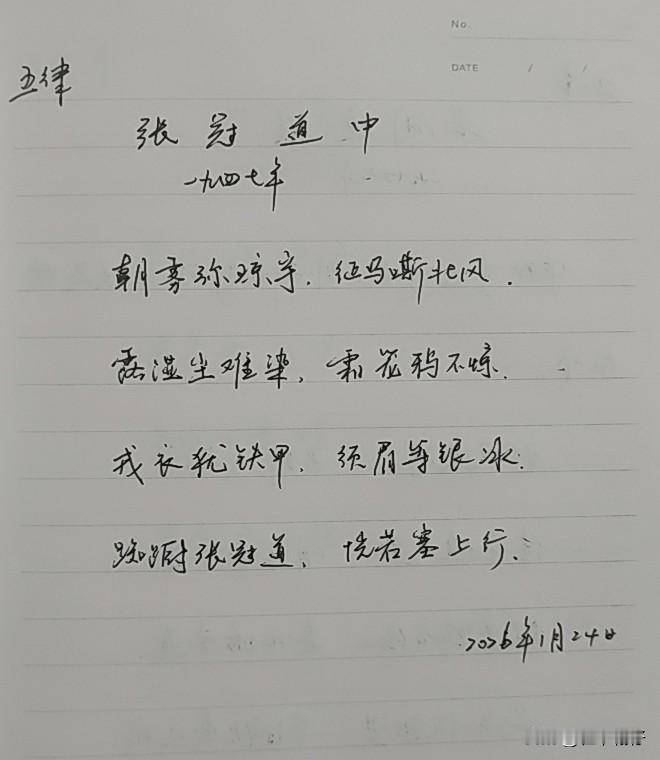 No.
DATE / /
五律
张冠道中
一九四七年
朝雾弥琼宇，征马嘶北风．
露湿尘难染，霜笼鸦不惊．
戎衣犹铁甲，须眉等银冰．
踟蹰张冠道，恍若塞上行．
2026年1月24日